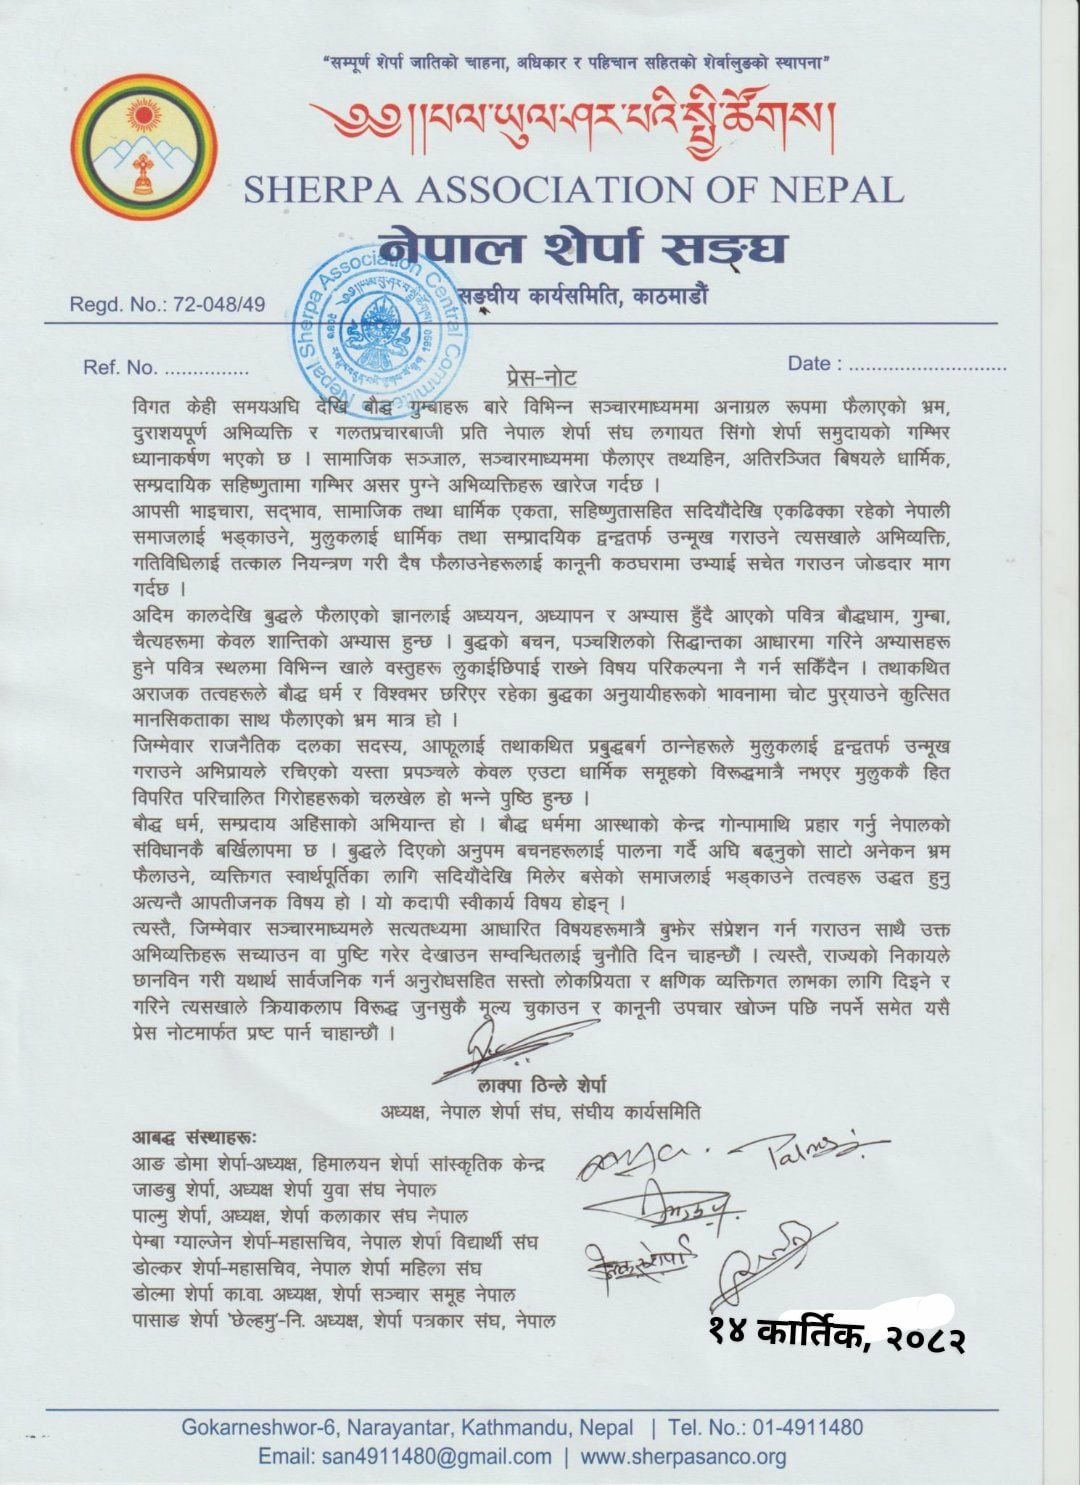 “सम्पूर्ण शेर्पा जातिको चाहना, अधिकार र पहिचान सहितको शेर्वालुङको स्थापना”
༄༅།།བལ་ཡུལ་ཤར་པའི་སྤྱི་ཚོགས།
SHERPA ASSOCIATION OF NEPAL
नेपाल शेर्पा सङ्घ
सङ्घीय कार्यसमिति, काठमाडौं
Regd. No.: 72-048/49
Nepal Sherpa Association Central Committee
1990
Ref. No. ...............
Date : ............................
प्रेस-नोट
विगत केही समयअघि देखि बौद्ध गुम्बाहरू बारे विभिन्न सञ्चारमाध्यममा अनाग्रल रूपमा फैलाएको भ्रम,
दुराशयपूर्ण अभिव्यक्ति र गलतप्रचारबाजी प्रति नेपाल शेर्पा संघ लगायत सिंगो शेर्पा समुदायको गम्भिर
ध्यानाकर्षण भएको छ । सामाजिक सञ्जाल, सञ्चारमाध्यममा फैलाएर तथ्यहिन, अतिरञ्जित बिषयले धार्मिक,
सम्प्रदायिक सहिष्णुतामा गम्भिर असर पुग्ने अभिव्यक्तिहरू खारेज गर्दछ ।
आपसी भाइचारा, सद्‌भाव, सामाजिक तथा धार्मिक एकता, सहिष्णुतासहित सदियौंदेखि एकढिक्का रहेको नेपाली
समाजलाई भड्काउने, मुलुकलाई धार्मिक तथा सम्प्रादायिक द्वन्द्वतर्फ उन्मूख गराउने त्यसखाले अभिव्यक्ति,
गतिविधिलाई तत्काल नियन्त्रण गरी दैष फैलाउनेहरूलाई कानूनी कठघरामा उभ्याई सचेत गराउन जोडदार माग
गर्दछ ।
अदिम कालदेखि बुद्धले फैलाएको ज्ञानलाई अध्ययन, अध्यापन र अभ्यास हुँदै आएको पवित्र बौद्धधाम, गुम्बा,
चैत्यहरूमा केवल शान्तिको अभ्यास हुन्छ । बुद्धको बचन, पञ्चशिलको सिद्धान्तका आधारमा गरिने अभ्यासहरू
हुने पवित्र स्थलमा विभिन्न खाले वस्तुहरू लुकाईछिपाई राख्ने विषय परिकल्पना नै गर्न सकिँदैन । तथाकथित
अराजक तत्वहरूले बौद्ध धर्म र विश्वभर छरिएर रहेका बुद्धका अनुयायीहरूको भावनामा चोट पुर्‍याउने कुत्सित
मानसिकताका साथ फैलाएको भ्रम मात्र हो ।
जिम्मेवार राजनैतिक दलका सदस्य, आफूलाई तथाकथित प्रबुद्धबर्ग ठान्नेहरूले मुलुकलाई द्वन्द्वतर्फ उन्मूख
गराउने अभिप्रायले रचिएको यस्ता प्रपञ्चले केवल एउटा धार्मिक समूहको विरूद्धमात्रै नभएर मुलुककै हित
विपरित परिचालित गिरोहहरूको चलखेल हो भन्ने पुष्ठि हुन्छ ।
बौद्ध धर्म, सम्प्रदाय अहिंसाको अभियान्त हो । बौद्ध धर्ममा आस्थाको केन्द्र गोन्पामाथि प्रहार गर्नु नेपालको
संविधानकै बर्खिलापमा छ । बुद्धले दिएको अनुपम बचनहरूलाई पालना गर्दै अघि बढ्नुको साटो अनेकन भ्रम
फैलाउने, व्यक्तिगत स्वार्थपूर्तिका लागि सदियौंदेखि मिलेर बसेको समाजलाई भड्काउने तत्वहरू उद्धत हुनु
अत्यन्तै आपतीजनक विषय हो । यो कदापी स्वीकार्य विषय होइन् ।
त्यस्तै, जिम्मेवार सञ्चारमाध्यमले सत्यतथ्यमा आधारित विषयहरूमात्रै बुझेर संप्रेशन गर्न गराउन साथै उक्त
अभिव्यक्तिहरू सच्याउन वा पुष्टि गरेर देखाउन सम्वन्धितलाई चुनौति दिन चाहन्छौं । त्यस्तै, राज्यको निकायले
छानविन गरी यथार्थ सार्वजनिक गर्न अनुरोधसहित सस्तो लोकप्रियता र क्षणिक व्यक्तिगत लाभका लागि दिइने र
गरिने त्यसखाले क्रियाकलाप विरूद्ध जुनसुकै मूल्य चुकाउन र कानूनी उपचार खोज्न पछि नपर्ने समेत यसै
प्रेस नोटमार्फत प्रष्ट पार्न चाहान्छौं ।
लाक्पा ठिन्ले शेर्पा
अध्यक्ष, नेपाल शेर्पा संघ, संघीय कार्यसमिति
आबद्ध संस्थाहरू:
आङ डोमा शेर्पा-अध्यक्ष, हिमालयन शेर्पा सांस्कृतिक केन्द्र
जाङबु शेर्पा, अध्यक्ष शेर्पा युवा संघ नेपाल
पाल्मु शेर्पा, अध्यक्ष, शेर्पा कलाकार संघ नेपाल
पेम्बा ग्याल्जेन शेर्पा-महासचिव, नेपाल शेर्पा विद्यार्थी संघ
डोल्कर शेर्पा-महासचिव, नेपाल शेर्पा महिला संघ
डोल्मा शेर्पा का.वा. अध्यक्ष, शेर्पा सञ्चार समूह नेपाल
पासाङ शेर्पा ‘छेल्हमु’-नि. अध्यक्ष, शेर्पा पत्रकार संघ, नेपाल
१४ कार्तिक, २०८२
Gokarneshwor-6, Narayantar, Kathmandu, Nepal | Tel. No.: 01-4911480
Email: san4911480@gmail.com | www.sherpasanco.org